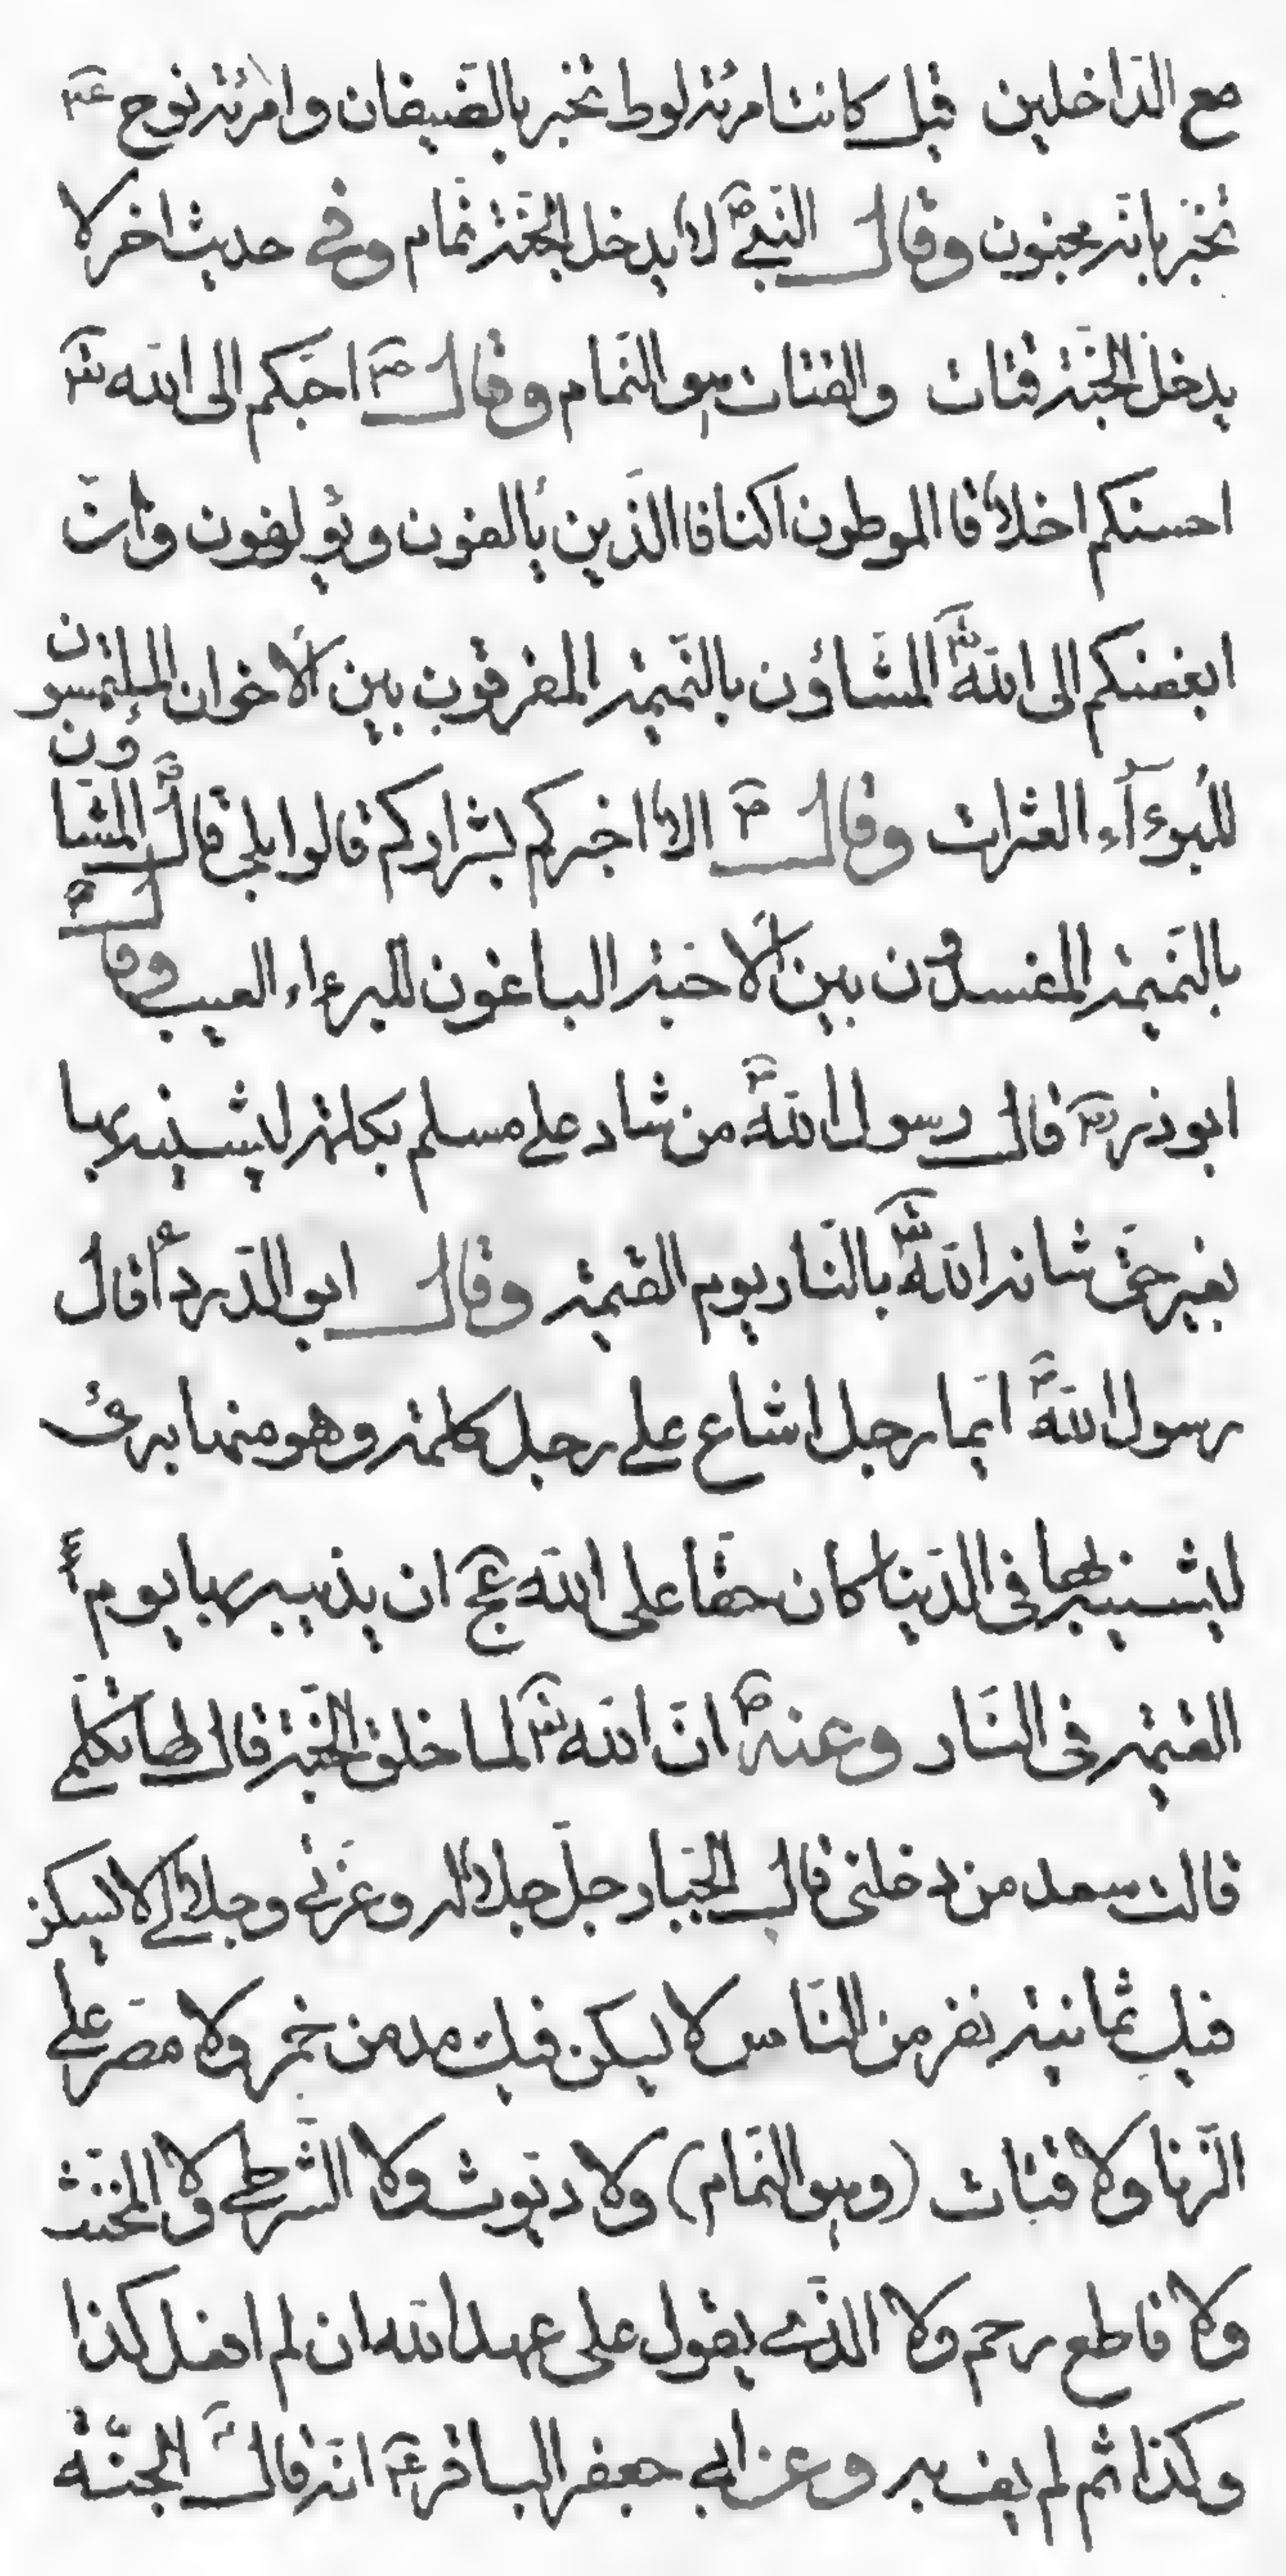 مع الداخلين قيل كانت امرئة لوط تخبر بالضيفان وامرئة نوح عم
تخبر بانه مجنون وقال النبي ص لا يدخل الجنة نمام وفي حديث اخر لا
يدخل الجنة قتات والقتات هو النمام وقال ص احبكم الى الله تع
احسنكم اخلاقا الموطون اكنافا الذين يألفون ويؤلفون وان
ابغضكم الى الله تع المشاؤن بالنميمة المفرقون بين الاخوان الملتمسون
للبرءآء العثرات وقال ص الا اخبركم بشراركم قالوا بلى قال ص المشاؤن
بالنميمة المفسدون بين الاحبة الباغون للبرءاء العيب وقال ص
ابوذر رض قال رسول الله ص من شاد على مسلم بكلمة ليشينه بها
بغير حق شانه الله تع بالنار يوم القيمة وقال ابو الدرداء قال
رسول الله ص ايما رجل اشاع على رجل كلمة وهو منها برئ
ليشينه بها فى الدنيا كان حقا على الله عج ان يذيبه بها يوم
القيمة فى النار وعنه ص ان الله تع لما خلق الجنة قال لها تكلمي
قالت سعد من دخلنى قال الجبار جل جلاله وعزتي وجلالي لا يسكن
فيك ثمانية نفر من الناس لا يسكن فيك مدمن خمر ولا مصر على
الزنا ولا قتات (وهو النمام) ولا ديوث ولا الشرطي ولا المخنث
ولا قاطع رحم ولا الذي يقول على عهد الله ان لم افعل كذا
وكذا ثم لم يف به وعن ابي جعفر الباقر عم انه قال الجنة